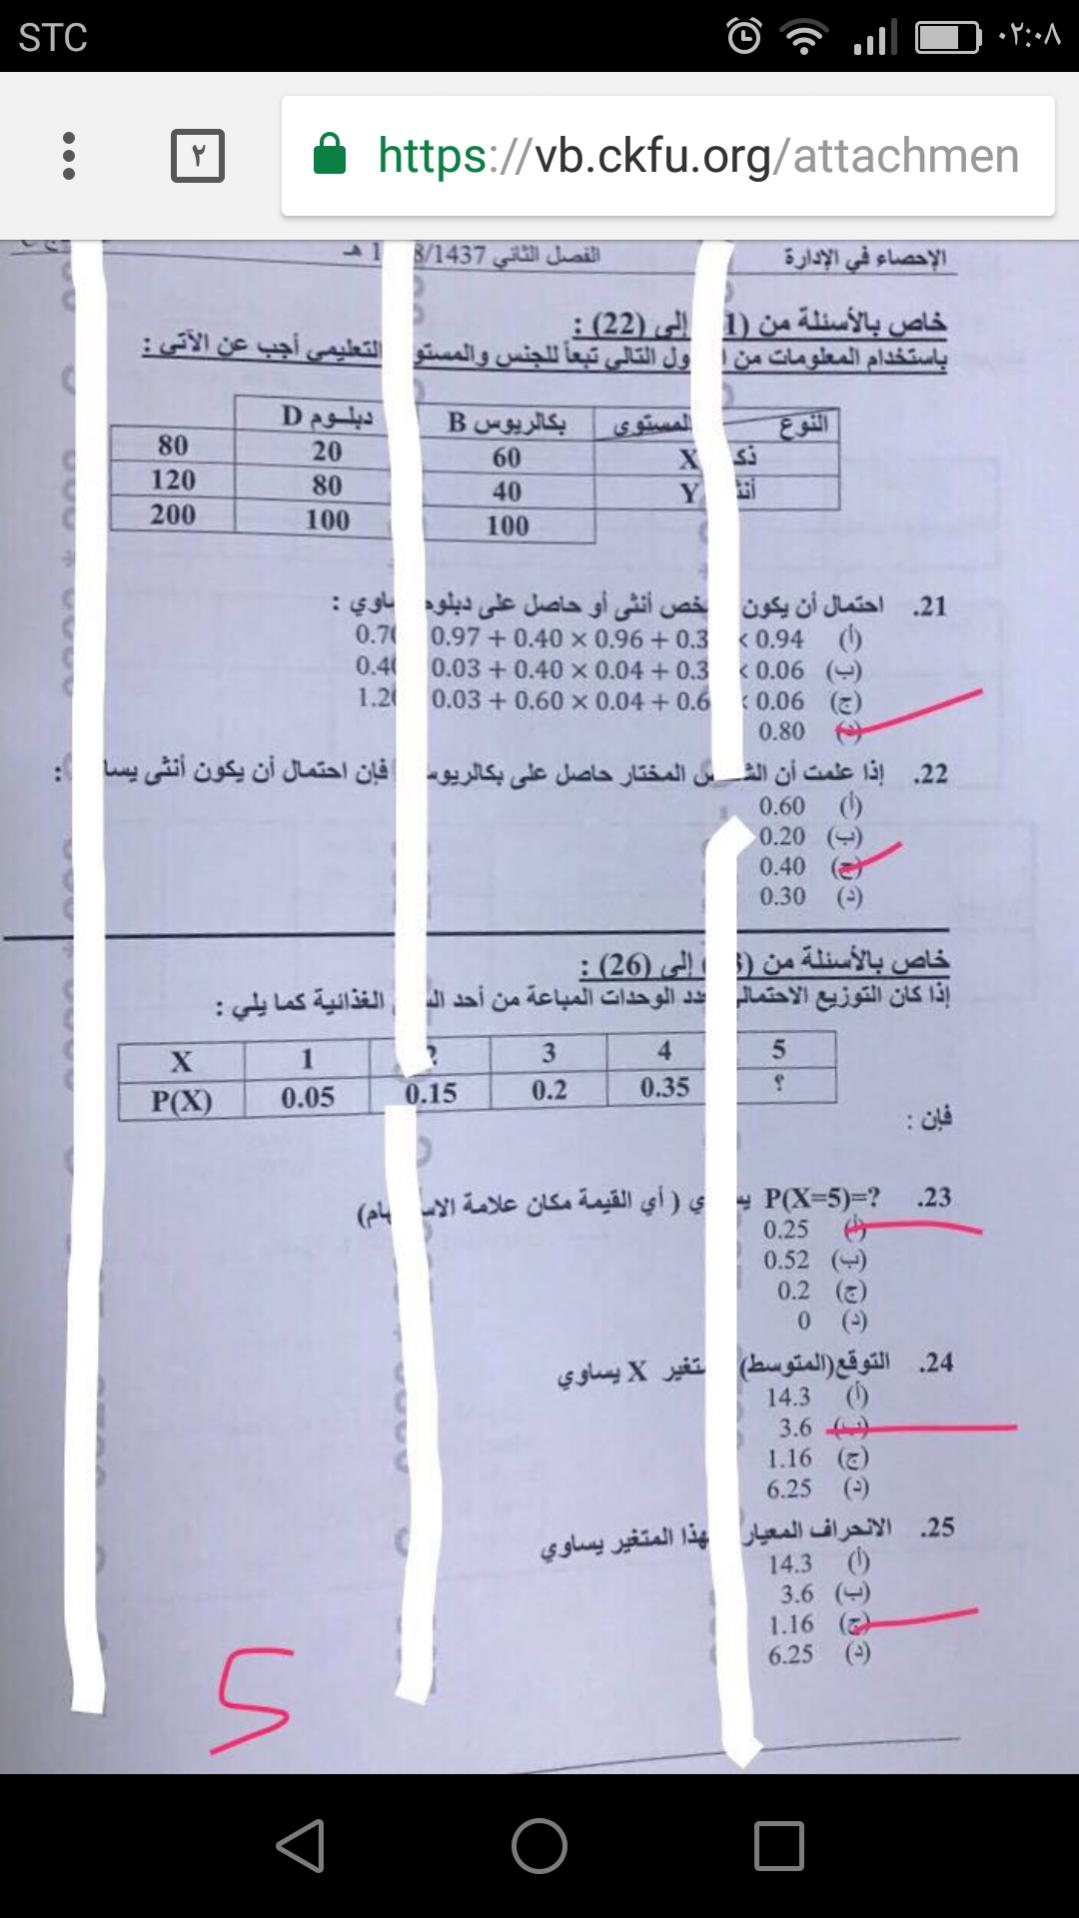 STC ٠٢:٠٨
٢ https://vb.ckfu.org/attachmen
الإحصاء في الإدارة الفصل الثاني 8/1437 1 هـ
خاص بالأسئلة من (1 إلى (22) :
باستخدام المعلومات من ول التالي تبعاً للجنس والمستو التعليمي أجب عن الآتي :
النوع المستوى بكالريوس B دبلوم D
ذك X 60 20 80
أنث Y 40 80 120
100 100 200
21. احتمال أن يكون خص أنثى أو حاصل على دبلوم ساوي :
(أ) 0.94 × 0.3 + 0.96 × 0.40 + 0.97 0.70
(ب) 0.06 × 0.3 + 0.04 × 0.40 + 0.03 0.40
(ج) 0.06 × 0.6 + 0.04 × 0.60 + 0.03 1.20
(د) 0.80
22. إذا علمت أن الش ص المختار حاصل على بكالريوس فإن احتمال أن يكون أنثى يسا :
(أ) 0.60
(ب) 0.20
(ج) 0.40
(د) 0.30
خاص بالأسئلة من (3 إلى (26) :
إذا كان التوزيع الاحتمالي دد الوحدات المباعة من أحد الس الغذائية كما يلي :
X 1 2 3 4 5
P(X) 0.05 0.15 0.2 0.35 ؟
فإن :
23. P(X=5)=? يس ي ( أي القيمة مكان علامة الاس هام)
(أ) 0.25
(ب) 0.52
(ج) 0.2
(د) 0
24. التوقع(المتوسط) متغير X يساوي
(أ) 14.3
(ب) 3.6
(ج) 1.16
(د) 6.25
25. الانحراف المعيار لهذا المتغير يساوي
(أ) 14.3
(ب) 3.6
(ج) 1.16
(د) 6.25
5